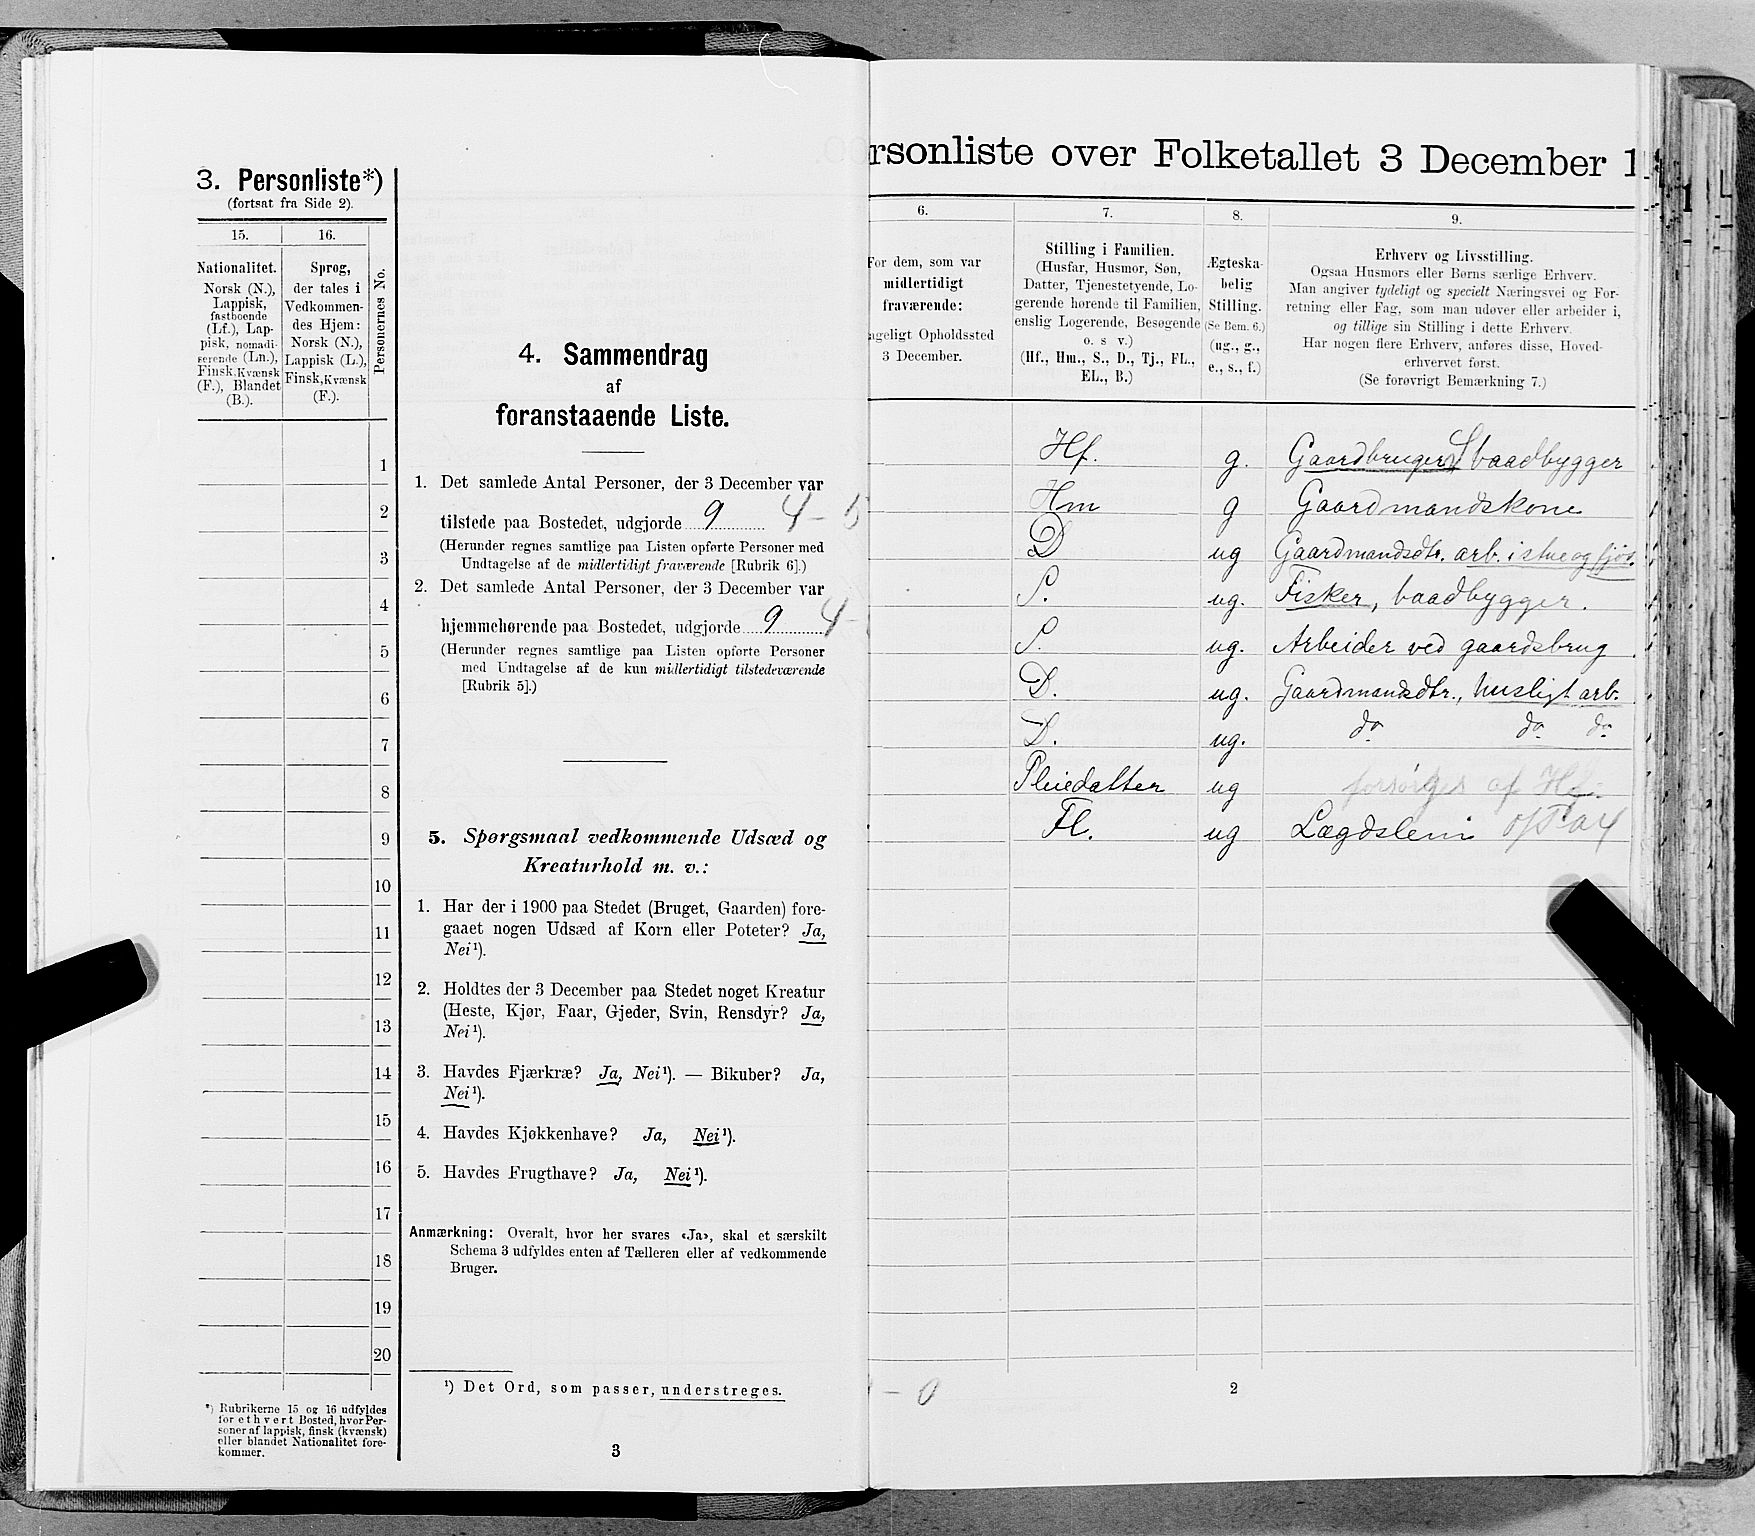 3. Personliste*)
(fortsat fra Side 2).
15.
16.
Nationalitet.
Norsk (N.),
Lappisk,
fastboende
(Lf.), Lap-
pisk, nomadi-
serende (Ln.),
Finsk, Kvænsk
(F.), Blandet
(B.).
Sprog,
der tales i
Vedkommen-
des Hjem:
Norsk (N.),
Lappisk (L.),
Finsk, Kvænsk
(F.).
Personernes No.
1
2
3
4
5
6
7
8
9
10
11
12
13
14
15
16
17
18
19
20
*) Rubrikerne 15 og 16 udfyldes
for ethvert Bosted, hvor Per-
soner af lappisk, finsk (kvænsk)
eller blandet Nationalitet fore-
kommer.
4. Sammendrag
af
foranstaaende Liste.
1. Det samlede Antal Personer, der 3 December var
tilstede paa Bostedet, udgjorde 9 4-5
(Herunder regnes samtlige paa Listen opførte Personer med
Undtagelse af de midlertidigt fraværende [Rubrik 6].)
2. Det samlede Antal Personer, der 3 December var
hjemmehørende paa Bostedet, udgjorde 9 4-
(Herunder regnes samtlige paa Listen opførte Personer
med Undtagelse af de kun midlertidigt tilstedeværende
[Rubrik 5].)
5. Spørgsmaal vedkommende Udsæd og
Kreaturhold m. v.:
1. Har der i 1900 paa Stedet (Bruget, Gaarden) fore-
gaaet nogen Udsæd af Korn eller Poteter? Ja,
Nei¹).
2. Holdtes der 3 December paa Stedet noget Kreatur
(Heste, Kjør, Faar, Gjeder, Svin, Rensdyr? Ja,
Nei¹).
3. Havdes Fjærkræ? Ja, Nei¹). — Bikuber? Ja,
Nei¹).
4. Havdes Kjøkkenhave? Ja, Nei¹).
5. Havdes Frugthave? Ja, Nei¹).
Anmærkning: Overalt, hvor her svares «Ja», skal et særskilt
Schema 3 udfyldes enten af Tælleren eller af vedkommende
Bruger.
¹) Det Ord, som passer, understreges.
3
rsonliste over Folketallet 3 December 1
6.
7.
8.
9.
For dem, som var
midlertidigt
fraværende:
ageligt Opholdssted
3 December.
Stilling i Familien.
(Husfar, Husmor, Søn,
Datter, Tjenestetyende, Lo-
gerende hørende til Familien,
enslig Logerende, Besøgende
o. s v.)
(Hf., Hm., S., D., Tj., FL.,
EL., B.)
Ægteska-
belig
Stilling.
(Se Bem. 6.)
(ug., g.,
e., s., f.)
Erhverv og Livsstilling.
Ogsaa Husmors eller Børns særlige Erhverv.
Man angiver tydeligt og specielt Næringsvei og For-
retning eller Fag, som man udøver eller arbeider i,
og tillige sin Stilling i dette Erhverv.
Har nogen flere Erhverv, anføres disse, Hoved-
erhvervet først.
(Se forøvrigt Bemærkning 7.)
Hf. g. Gaardbruger S baadbygger
Hm g Gaardmandskone
D ug Gaardmandsdtr. arb. i stue og fjøs.
S. ug. Fisker, baadbygger.
S. ug. Arbeider ved gaardsbrug
D. ug. Gaardmandsdtr., husligt arb.
D. ug. do do do
Pleiedatter ug forsørges af Hf.
Fl. ug Lægdslem of Fa4
- 0
2